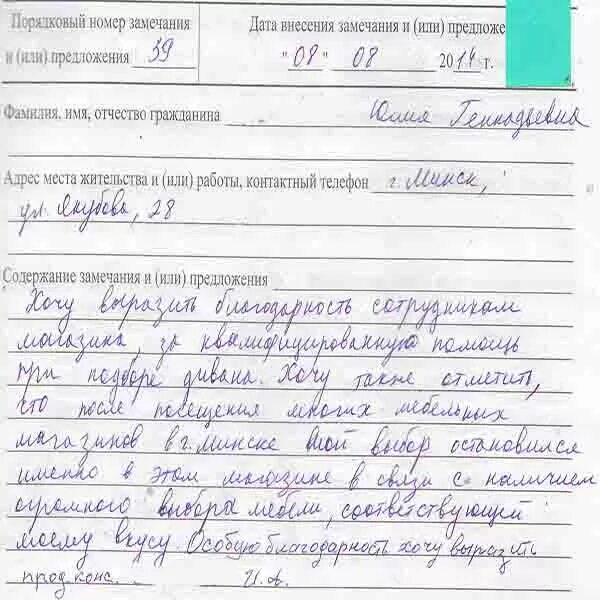 Порядковый номер замечания
и (или) предложения 39
Дата внесения замечания и (или) предложе
"08" 08 2014 г.
Фамилия, имя, отчество гражданина Юлия Геннадьевна
Адрес места жительства и (или) работы, контактный телефон г. Минск,
ул. Якубова, 28
Содержание замечания и (или) предложения
Хочу выразить благодарность сотрудникам
магазина, за квалифицированную помощь
при подборе дивана. Хочу также отметить,
что после посещения многих мебельных
магазинов в г. Минске мой выбор остановился
именно в этом магазине в связи с наличием
огромного выбора мебели, соответствующей
моему вкусу. Особую благодарность хочу выразить
прод. конс. И.А.